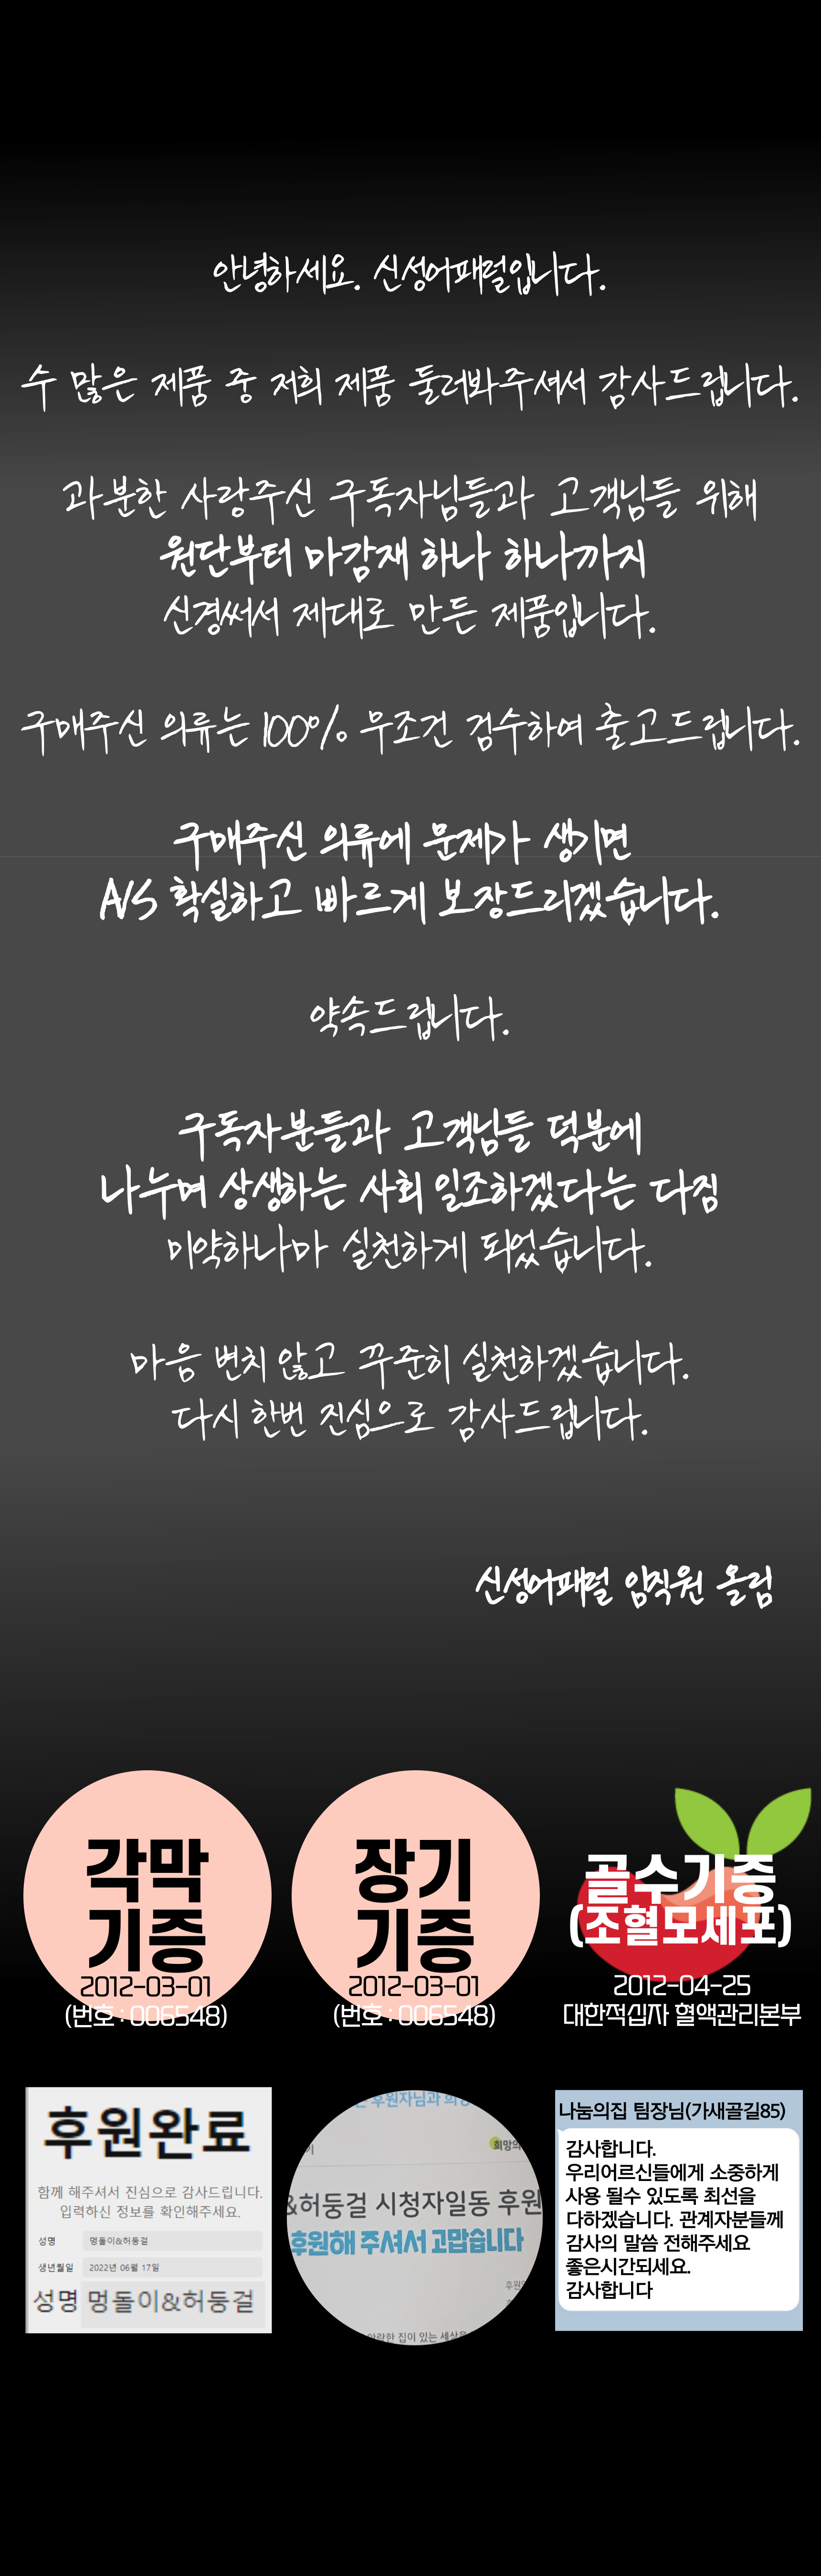 안녕하세요. 신성어패럴입니다.
수 많은 제품 중 저희 제품 둘러봐주셔서 감사드립니다.
과분한 사랑주신 구독자님들과 고객님들 위해
원단부터 마감재 하나 하나까지
신경써서 제대로 만든 제품입니다.
구매주신 의류는 100% 무조건 검수하여 출고드립니다.
구매주신 의류에 문제가 생기면
A/S 확실하고 빠르게 보장드리겠습니다.
약속드립니다.
구독자분들과 고객님들 덕분에
나누며 상생하는 사회 일조하겠다는 다짐
미약하나마 실천하게 되었습니다.
마음 변치 않고 꾸준히 실천하겠습니다.
다시 한번 진심으로 감사드립니다.
신성어패럴 임직원 올림
각막
기증
2012-03-01
(번호 : 006548)
장기
기증
2012-03-01
(번호 : 006548)
골수기증
(조혈모세포)
2012-04-25
대한적십자 혈액관리본부
후원완료
함께 해주셔서 진심으로 감사드립니다.
입력하신 정보를 확인해주세요.
성명 멍돌이&허둥걸
생년월일 2022년 06월 17일
성명 멍돌이&허둥걸
후원자님과
희망의
&허둥걸 시청자일동 후원
후원해 주셔서 고맙습니다
안락한 집이 있는 세상을
나눔의집 팀장님(가새골길85)
감사합니다.
우리어르신들에게 소중하게
사용 될수 있도록 최선을
다하겠습니다. 관계자분들께
감사의 말씀 전해주세요
좋은시간되세요.
감사합니다